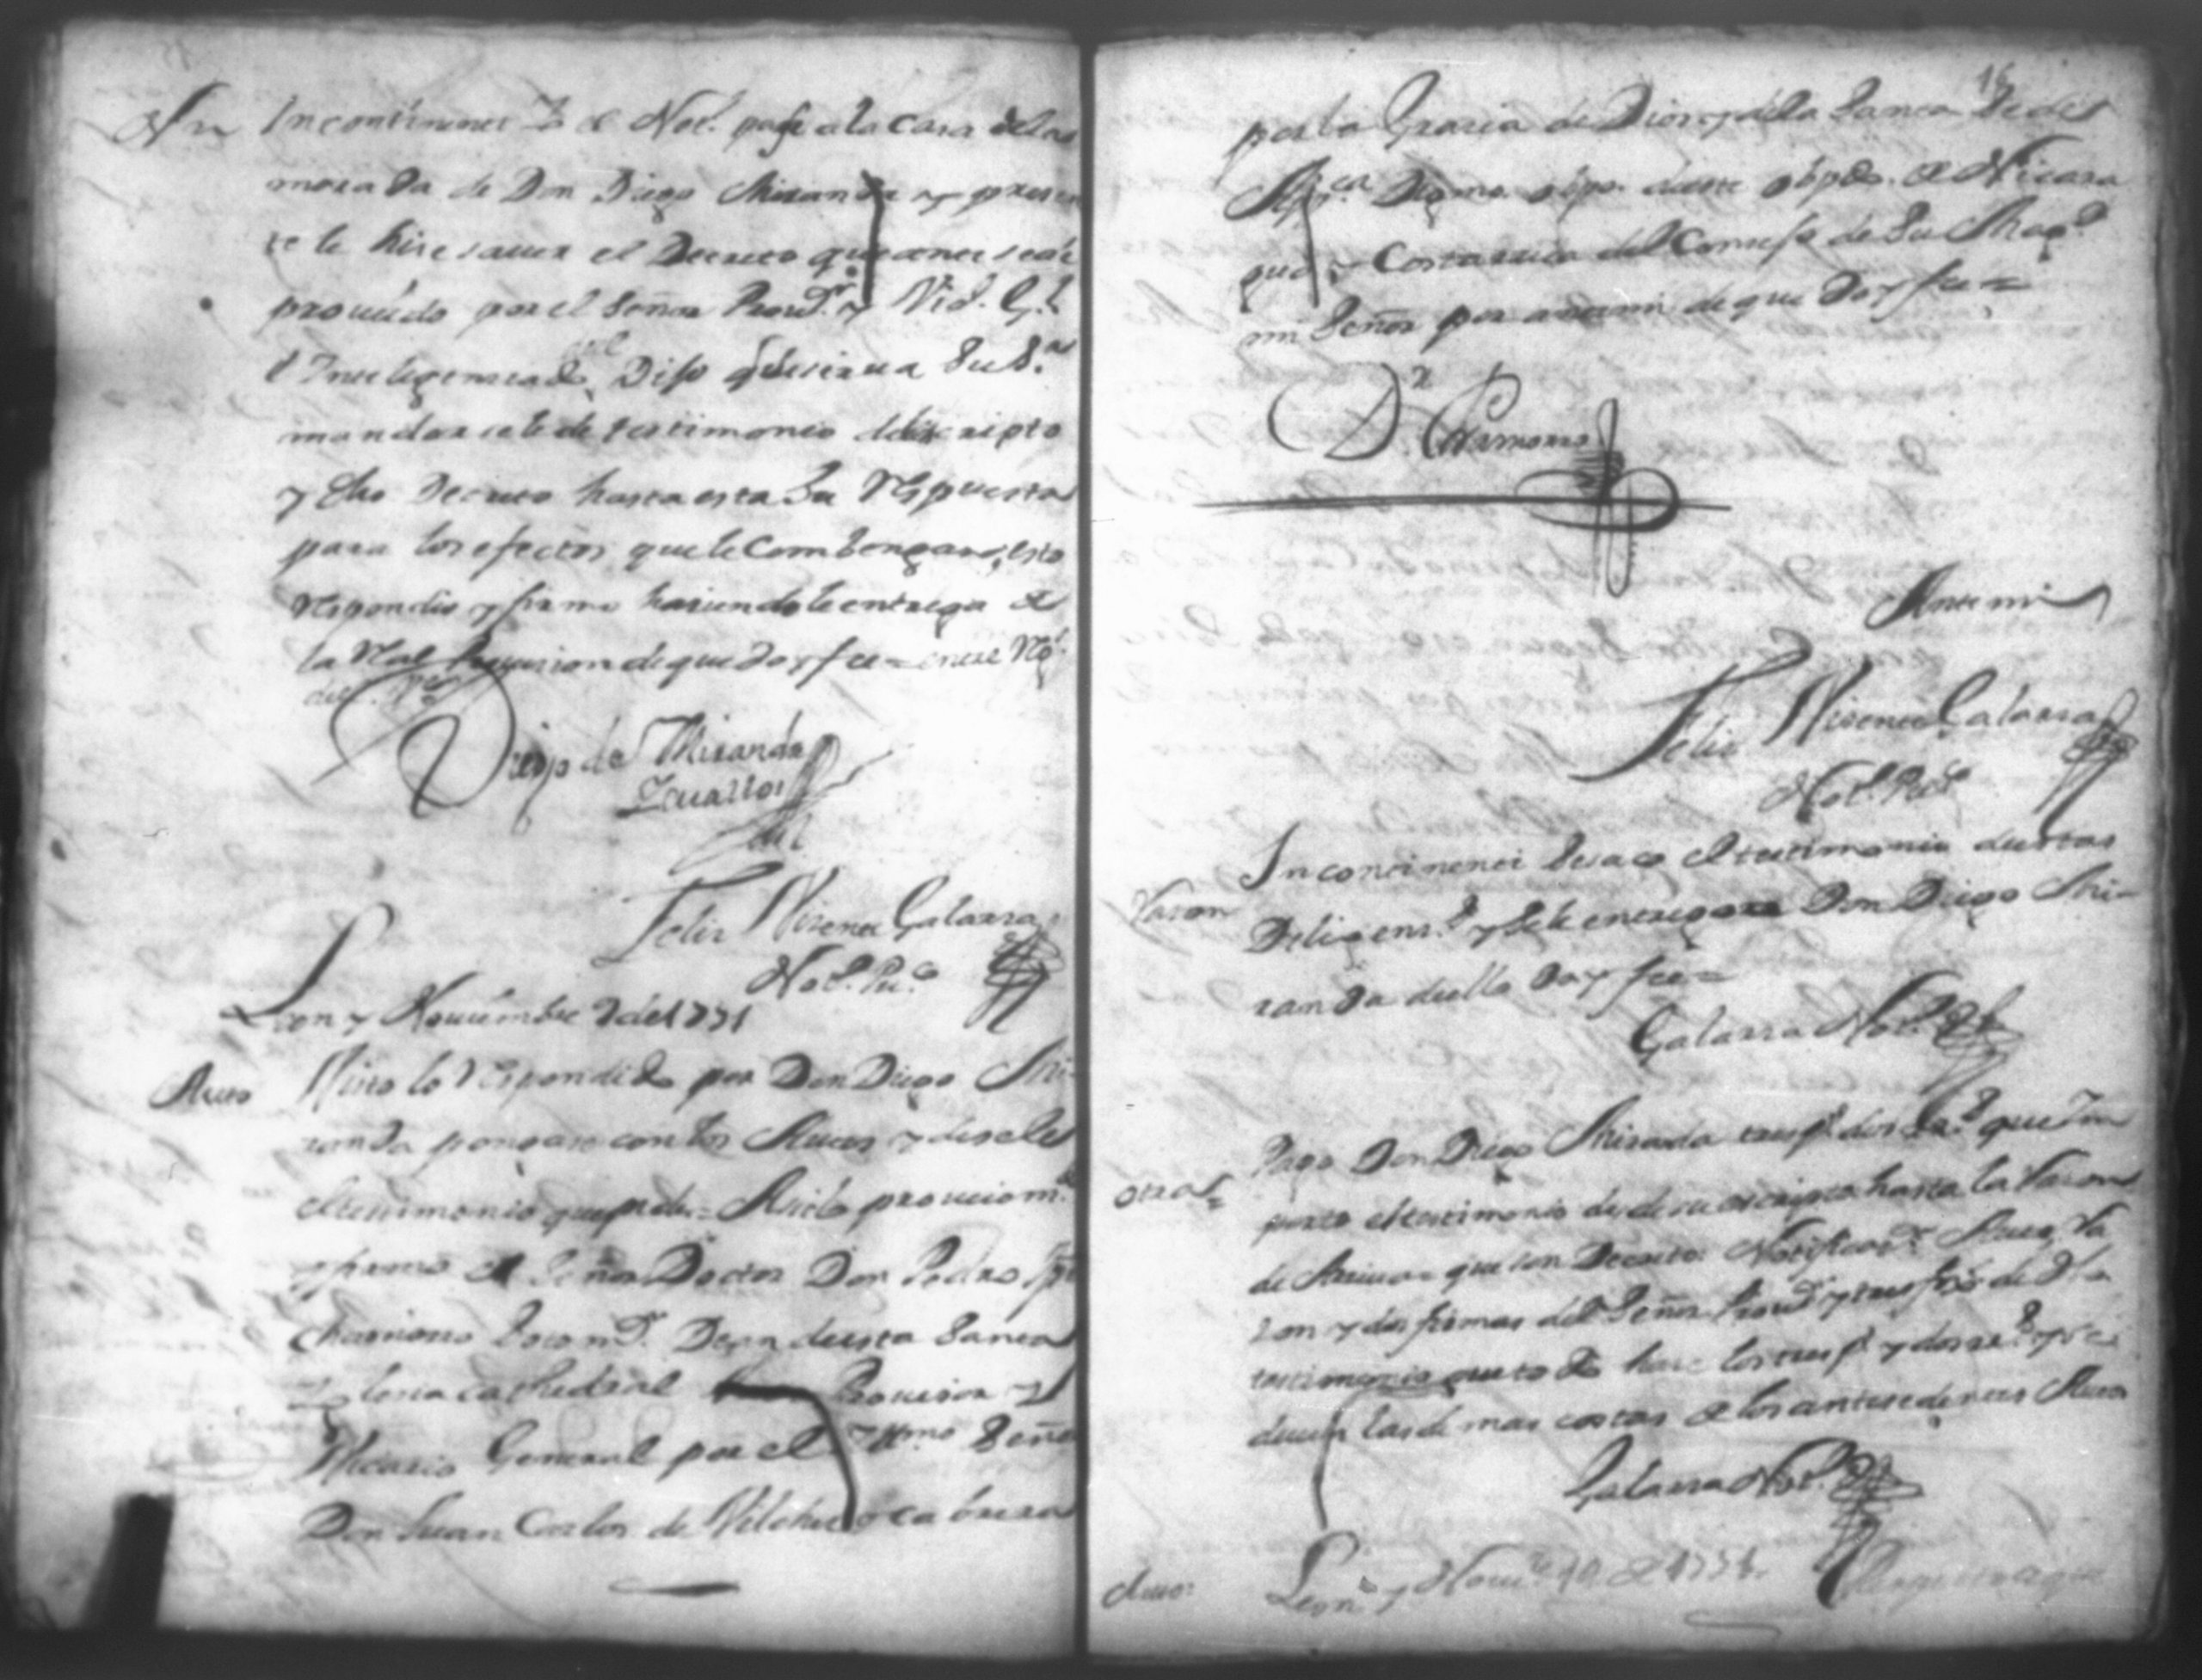 Incontinenti Yo el Not.º pase a la casa de la
morada de Don Diego Miranda y presen
te le hise saver el Decreto que antesede
proveido por el Señor Provᵒʳ y Vicº. Gˡ.
è Inteligenciado Dijo q se sirva su Sᵃ.
mandar se le de testimonio del escripto
y dho Decreto hasta esta su Respuesta
para los efectos que le Combengan, esto
Respondio y firmo hasiendole entrega de
la Real Provision de que doy fee =
Diego de Miranda
Zevallos
Felix Visente Galarza
Not.º Pu.co
Leon y Noviembre 9 de 1771
Auto Visto lo Respondido por Don Diego Mi-
randa pongase con los Autos y desele
el testimonio que pide = Asi lo proveio m.ᵈᵒ
y firmo el Señor Doctor Don Pedro
Chamorro Dean de esta Santa
Iglesia Cathedral Provisor y
Vicario General por el Yllmo Señor
Don Juan Carlos de Vilches y Cabrera
16
por la Gracia de Dios y de la Santa Sede
App.ca Digmo. Obpo. de este Obpdo. de Nicara
gua, y Costarrica del Consejo de Su Magᵈ.
mi Señor por ante mi de que doy fee =
Dr. Chamorro
Ante mi
Felix Visente Galarza
Not.º Puᶜᵒ
Razon
Incontinenti se saco el testimonio de estas
Diligens.ˢ y se le entrego a Don Diego Mi-
randa de ello doy fee =
Galarza Not.º
Otra =
Pago Don Diego Miranda tres pˢ dos rr.ˢ que Im
porto el testimonio desde su escripto hasta la Razon
de Arriva = que son Decreto. Notificasⁿ. Auto, Ra
zon y dos firmas del Señor Provᵒʳ y tres
testimonio que todo hase los tres pˢ y dos rr.ˢ y se
deven las demas costas de los antesedentes Autos
Galarza Not.º
Auto =
Leon y Novᵉ 10 de 1771.